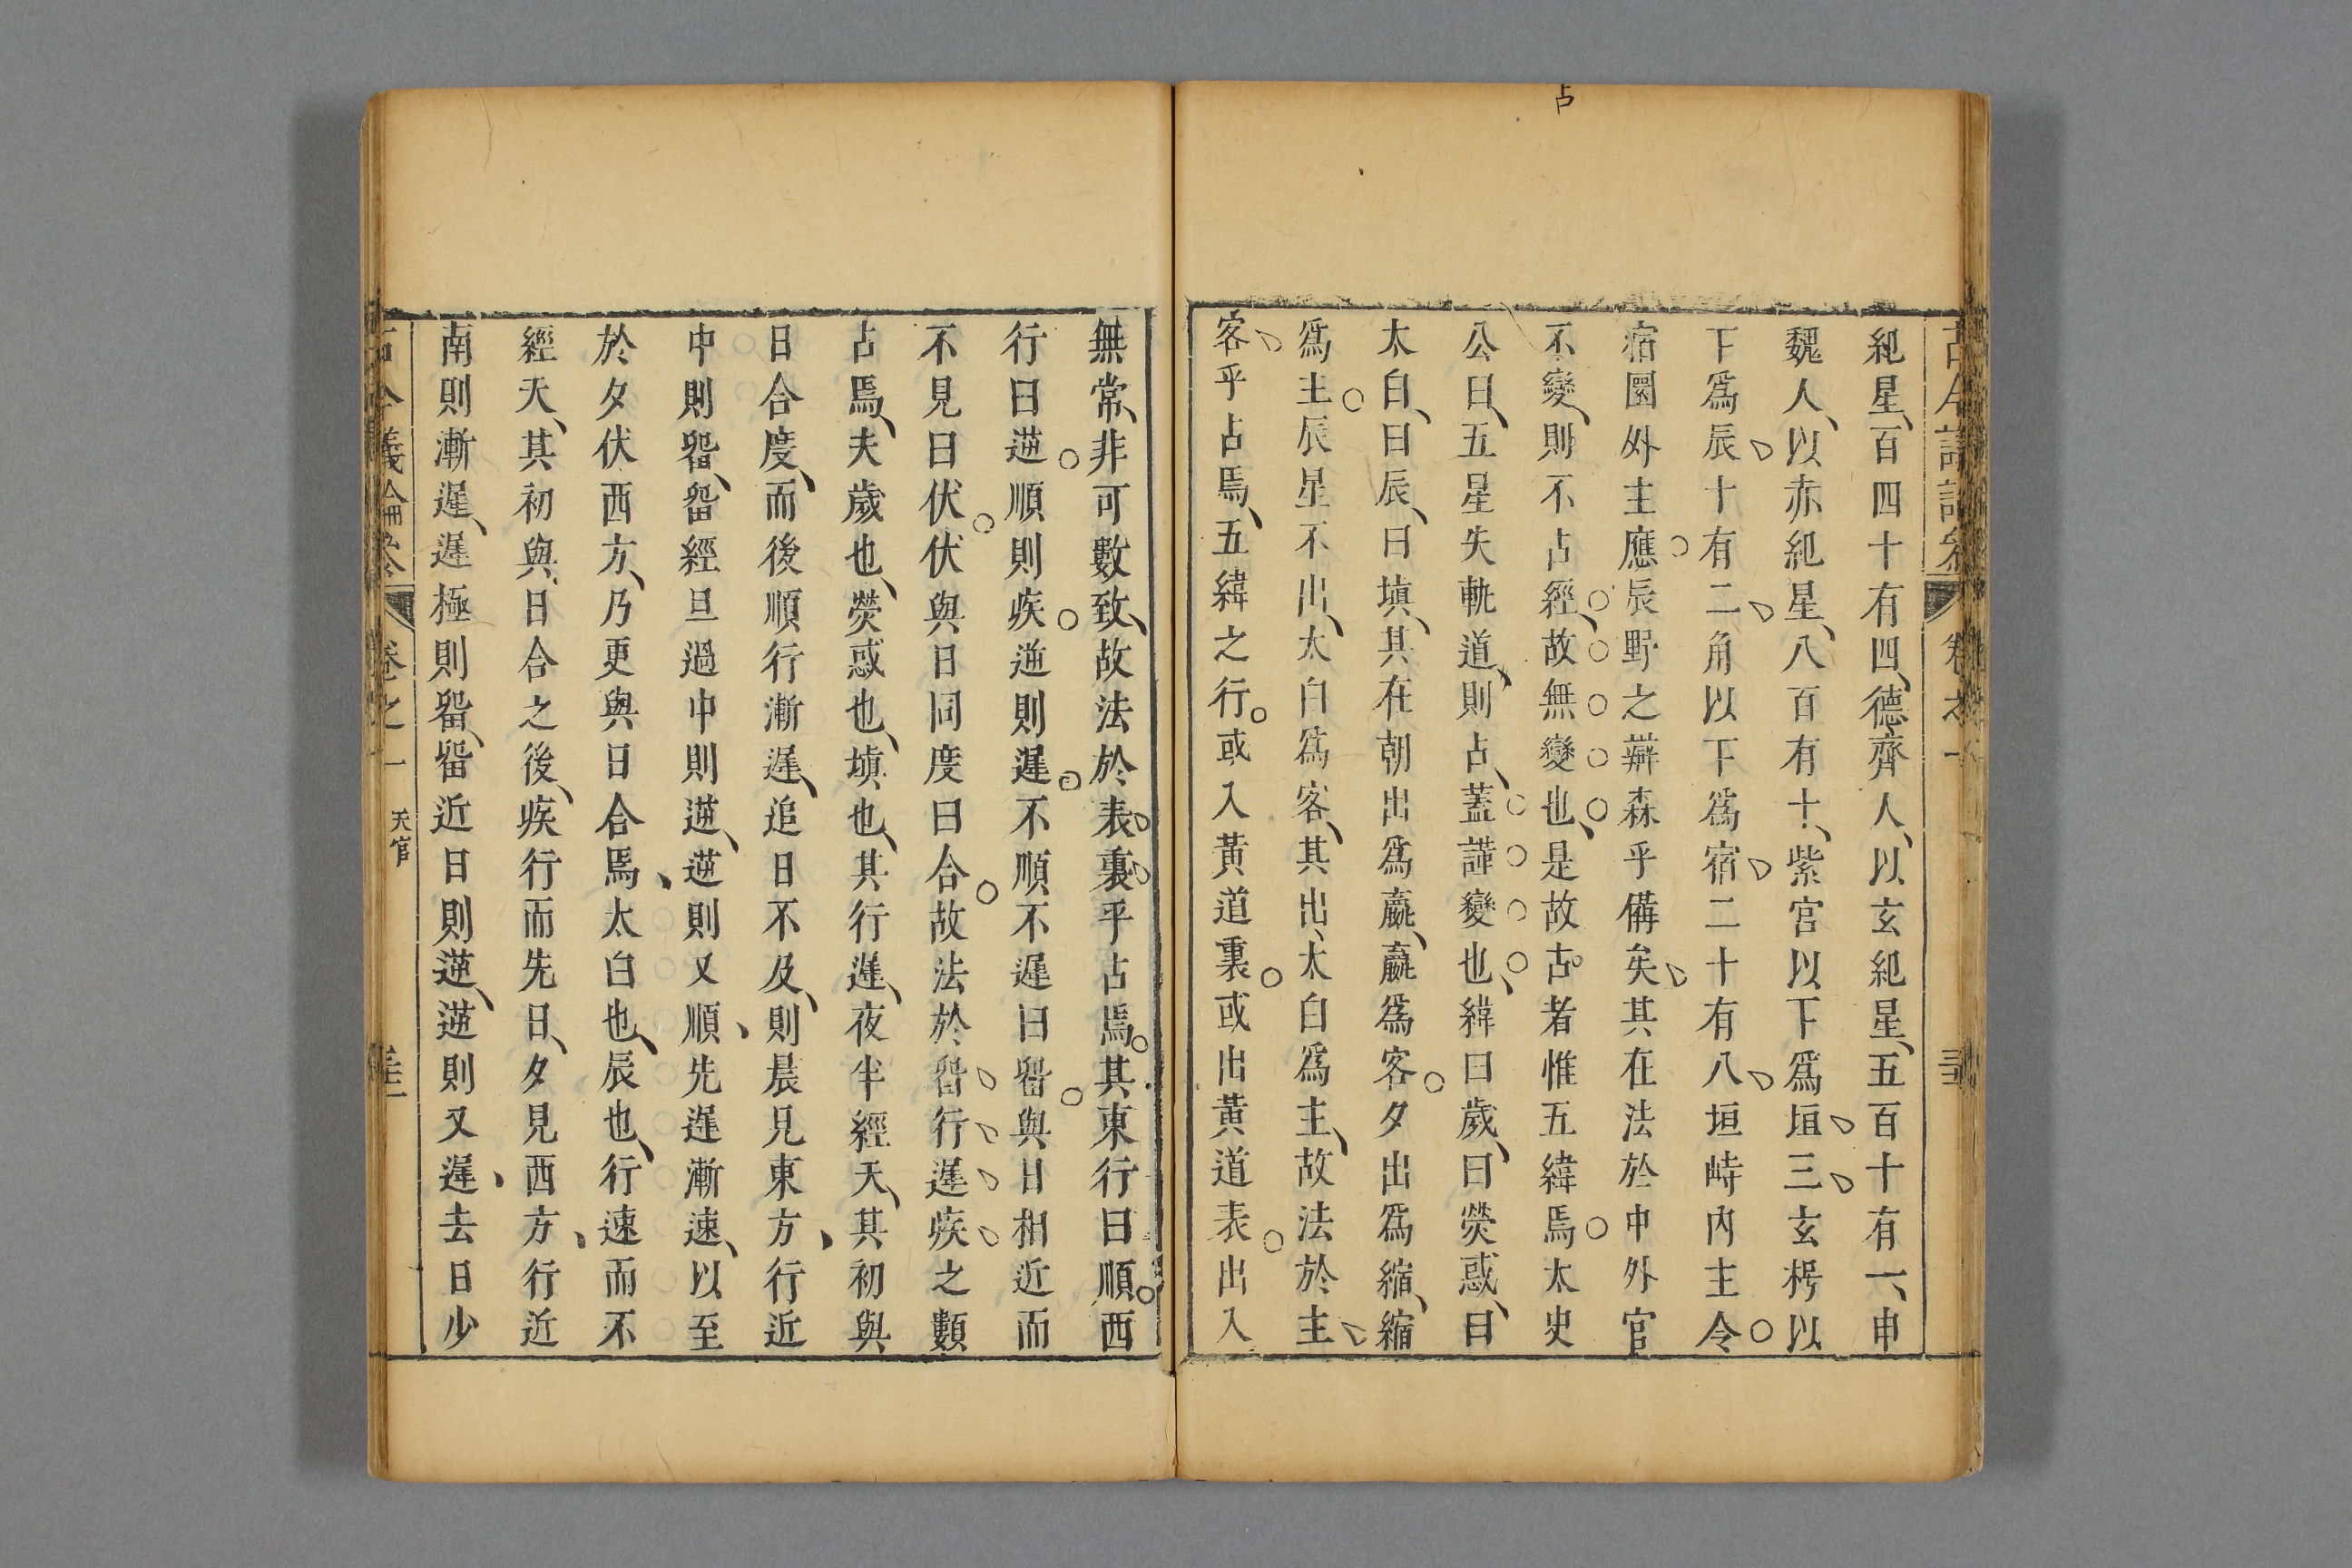 占
紀星、百四十有四、德齊人、以玄紀星、五百十有一、申
魏人、以赤紀星、八百有十、紫宮以下爲垣三玄枵以
下爲辰十有二角以下爲宿二十有八垣峙內主令
宿圜外主應辰野之辯森乎備矣其在法於中外官
不變、則不占經、故無變也、是故古者惟五緯焉太史
公曰、五星失軌道、則占、蓋謹變也、緯曰歲、曰熒惑、曰
太白、曰辰、曰塡、其在朝出爲贏、贏爲客夕出爲縮、縮
爲主辰星不出、太白爲客、其出、太白爲主、故法於主
客乎占焉、五緯之行或入黃道裏或出黃道表出入
無常、非可數致、故法於表裏乎占焉其東行曰順西
行曰逆順則疾逆則遲不順不遲曰畱與日相近而
不見曰伏伏與日同度曰合故法於畱行遲疾之數
占焉、夫歲也、熒惑也、塡也、其行遲、夜半經天、其初與
日合度、而後順行漸遲、追日不及、則晨見東方、行近
中則畱、畱經旦過中則逆、逆則又順、先遲漸速、以至
於夕伏西方、乃更與日合焉、太白也、辰也、行速而不
經天、其初與、日合之後、疾行而先日、夕見西方、行近
南則漸遲、遲極則畱、畱近日則逆、逆則又遲、去日少
古今議論參 卷之一 天官